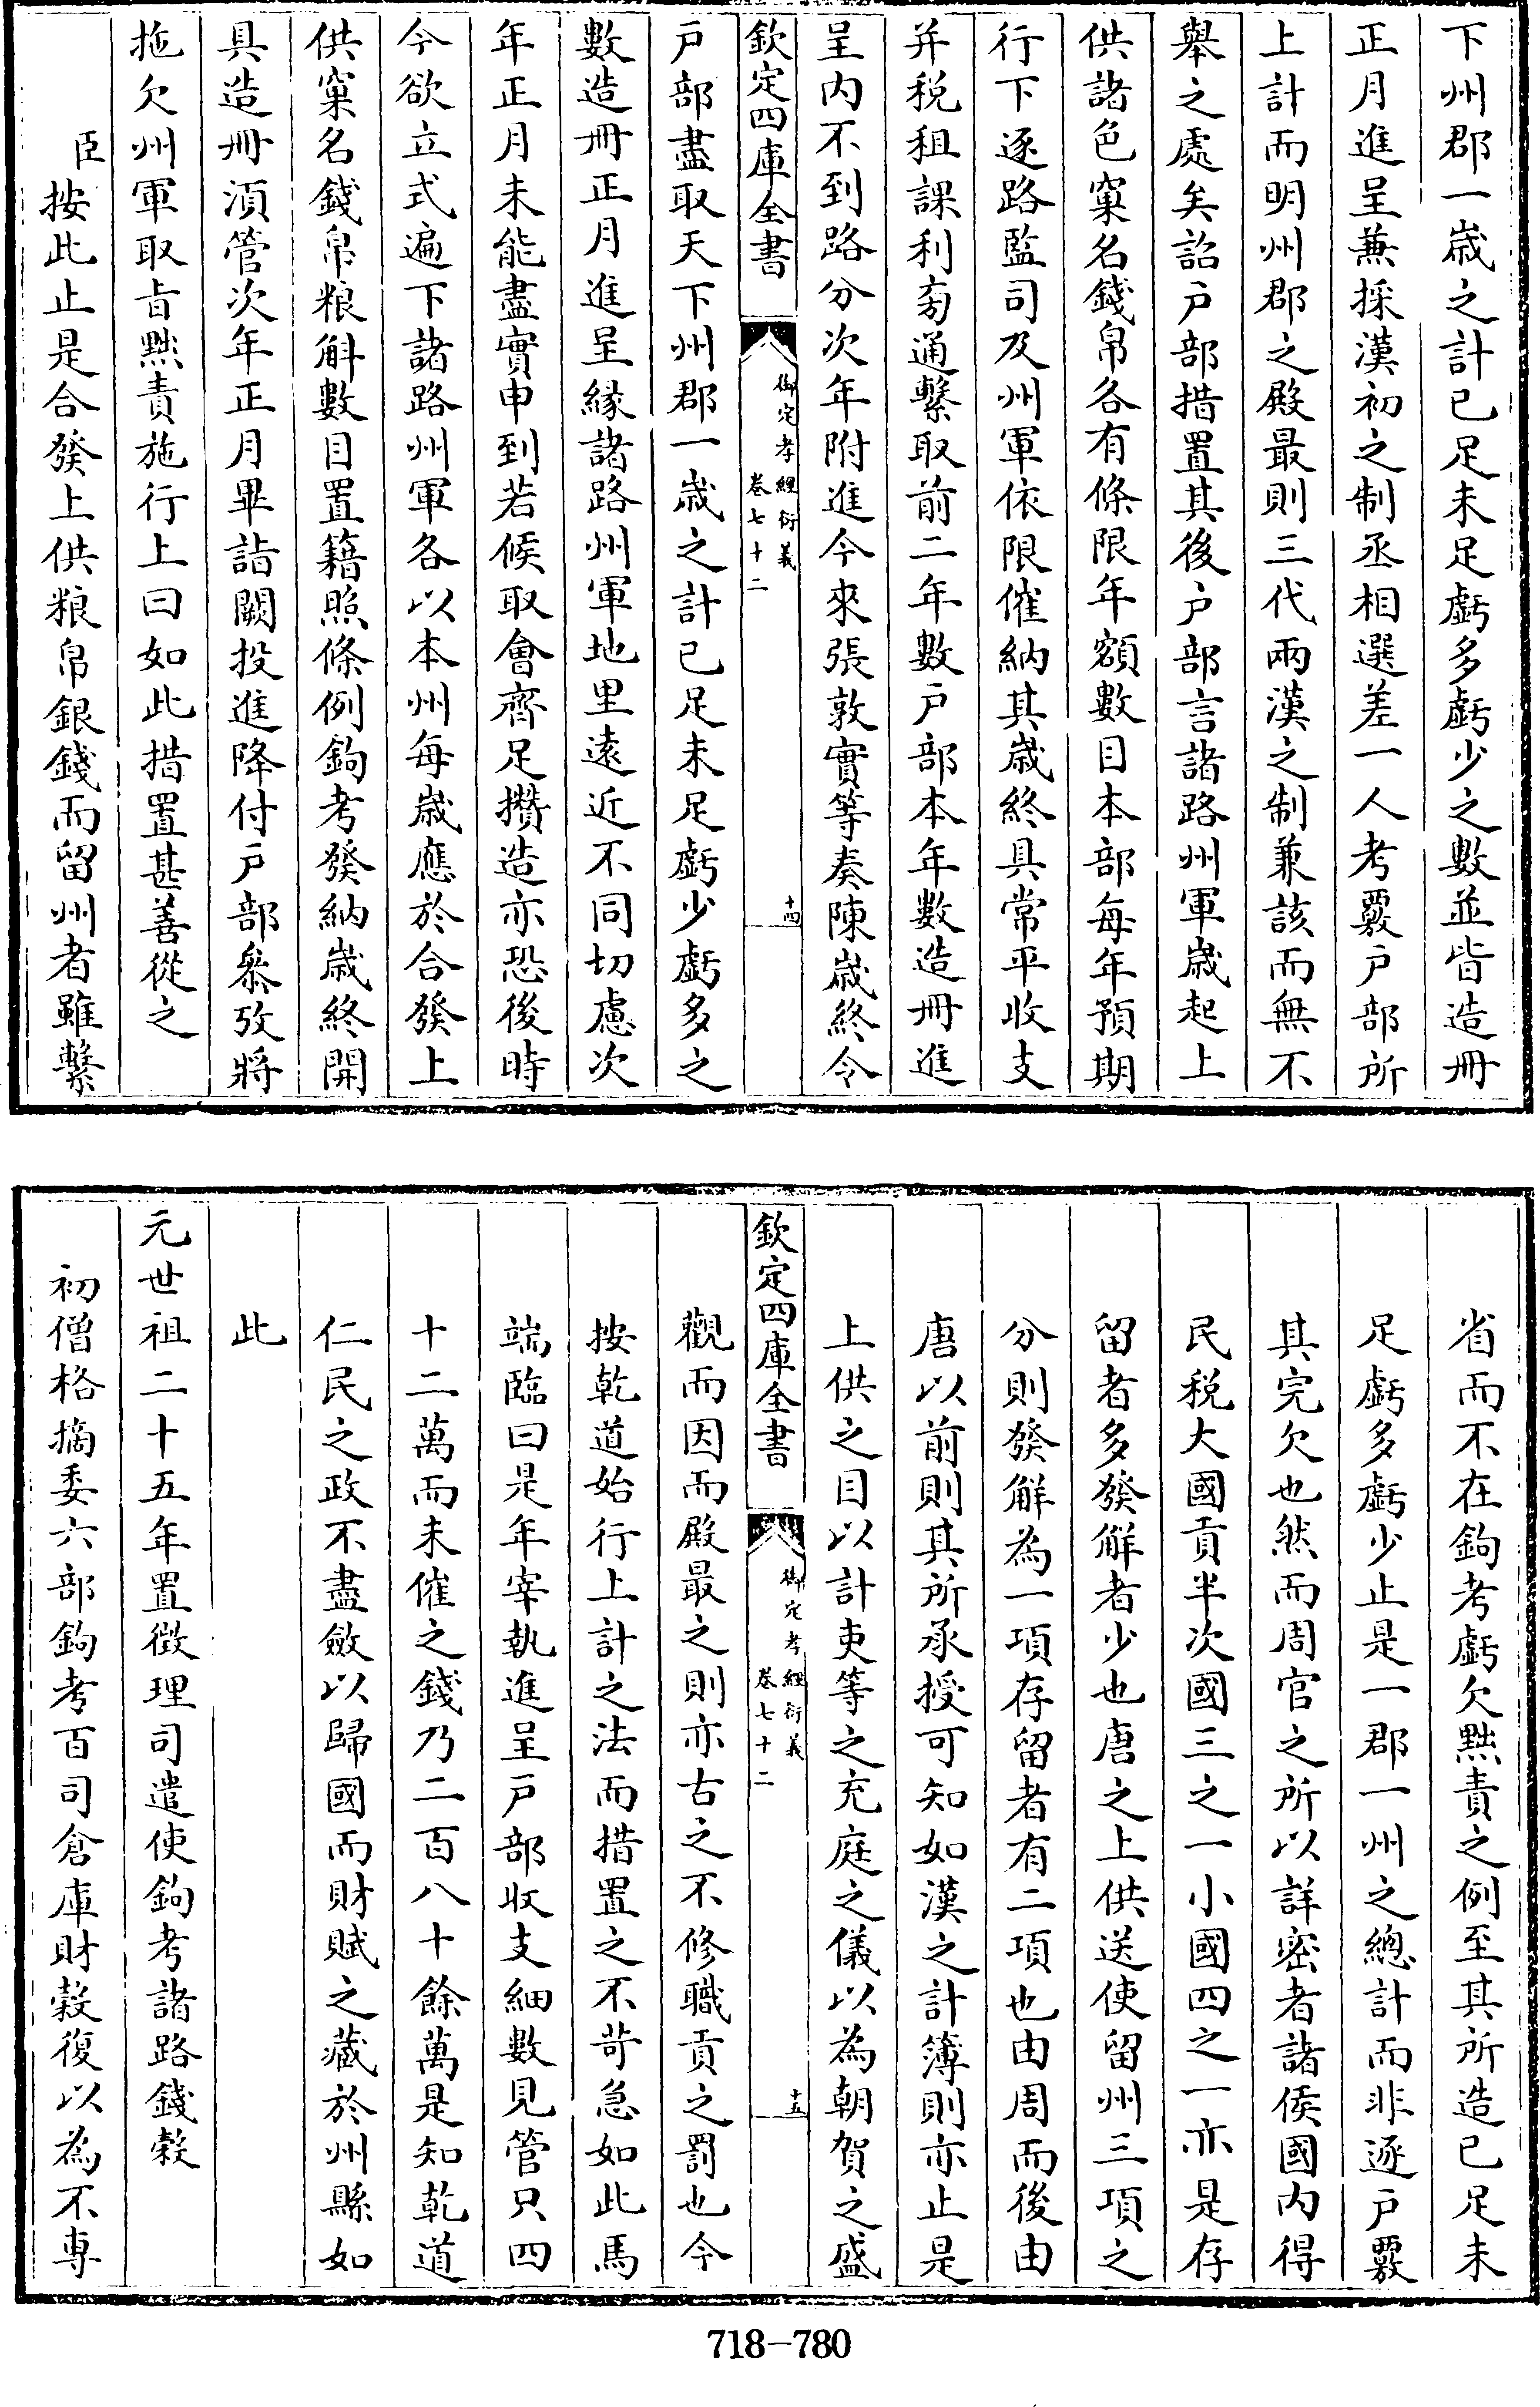 下州郡一歳之計已足未足虧多虧少之數並皆造冊
正月進呈兼採漢初之制丞相選差一人考覈户部所
上計而明州郡之殿最則三代兩漢之制兼該而無不
舉之處矣詔户部措置其後户部言諸路州軍歳起上
供諸色窠名錢帛各有條限年額數目本部每年預期
行下逐路監司及州軍依限催納其歳終具常平收支
并税租課利旁通繫取前二年數户部本年數造冊進
呈内不到路分次年附進今來張敦實等奏陳歳終令
欽定四庫全書
御定孝經衍義
卷七十二
十四
户部盡取天下州郡一歳之計已足未足虧少虧多之
數造冊正月進呈縁諸路州軍地里遠近不同切慮次
年正月未能盡實申到若候取會齊足攢造亦恐後時
今欲立式遍下諸路州軍各以本州每歳應於合發上
供窠名錢帛粮斛數目置籍照條例鉤考發納歳終開
具造冊湏管次年正月畢詣闕投進降付户部叅攷將
拖欠州軍取旨黜責施行上曰如此措置甚善從之
臣按此止是合發上供粮帛銀錢而留州者雖繫
省而不在鉤考虧欠黜責之例至其所造已足未
足虧多虧少止是一郡一州之總計而非逐户覈
其完欠也然而周官之所以詳密者諸侯國内得
民税大國貢半次國三之一小國四之一亦是存
留者多發觧者少也唐之上供送使留州三項之
分則發觧為一項存留者有二項也由周而後由
唐以前則其所承授可知如漢之計簿則亦止是
上供之目以計吏等之充庭之儀以為朝賀之盛
欽定四庫全書
御定孝經衍義
卷七十二
十五
觀而因而殿最之則亦古之不修職貢之罰也今
按乾道始行上計之法而措置之不苛急如此馬
端臨曰是年宰執進呈户部收支細數見管只四
十二萬而未催之錢乃二百八十餘萬是知乾道
仁民之政不盡斂以歸國而財賦之藏於州縣如
此
元世祖二十五年置徴理司遣使鉤考諸路錢穀
初僧格摘委六部鉤考百司倉庫財穀復以為不專
718-780